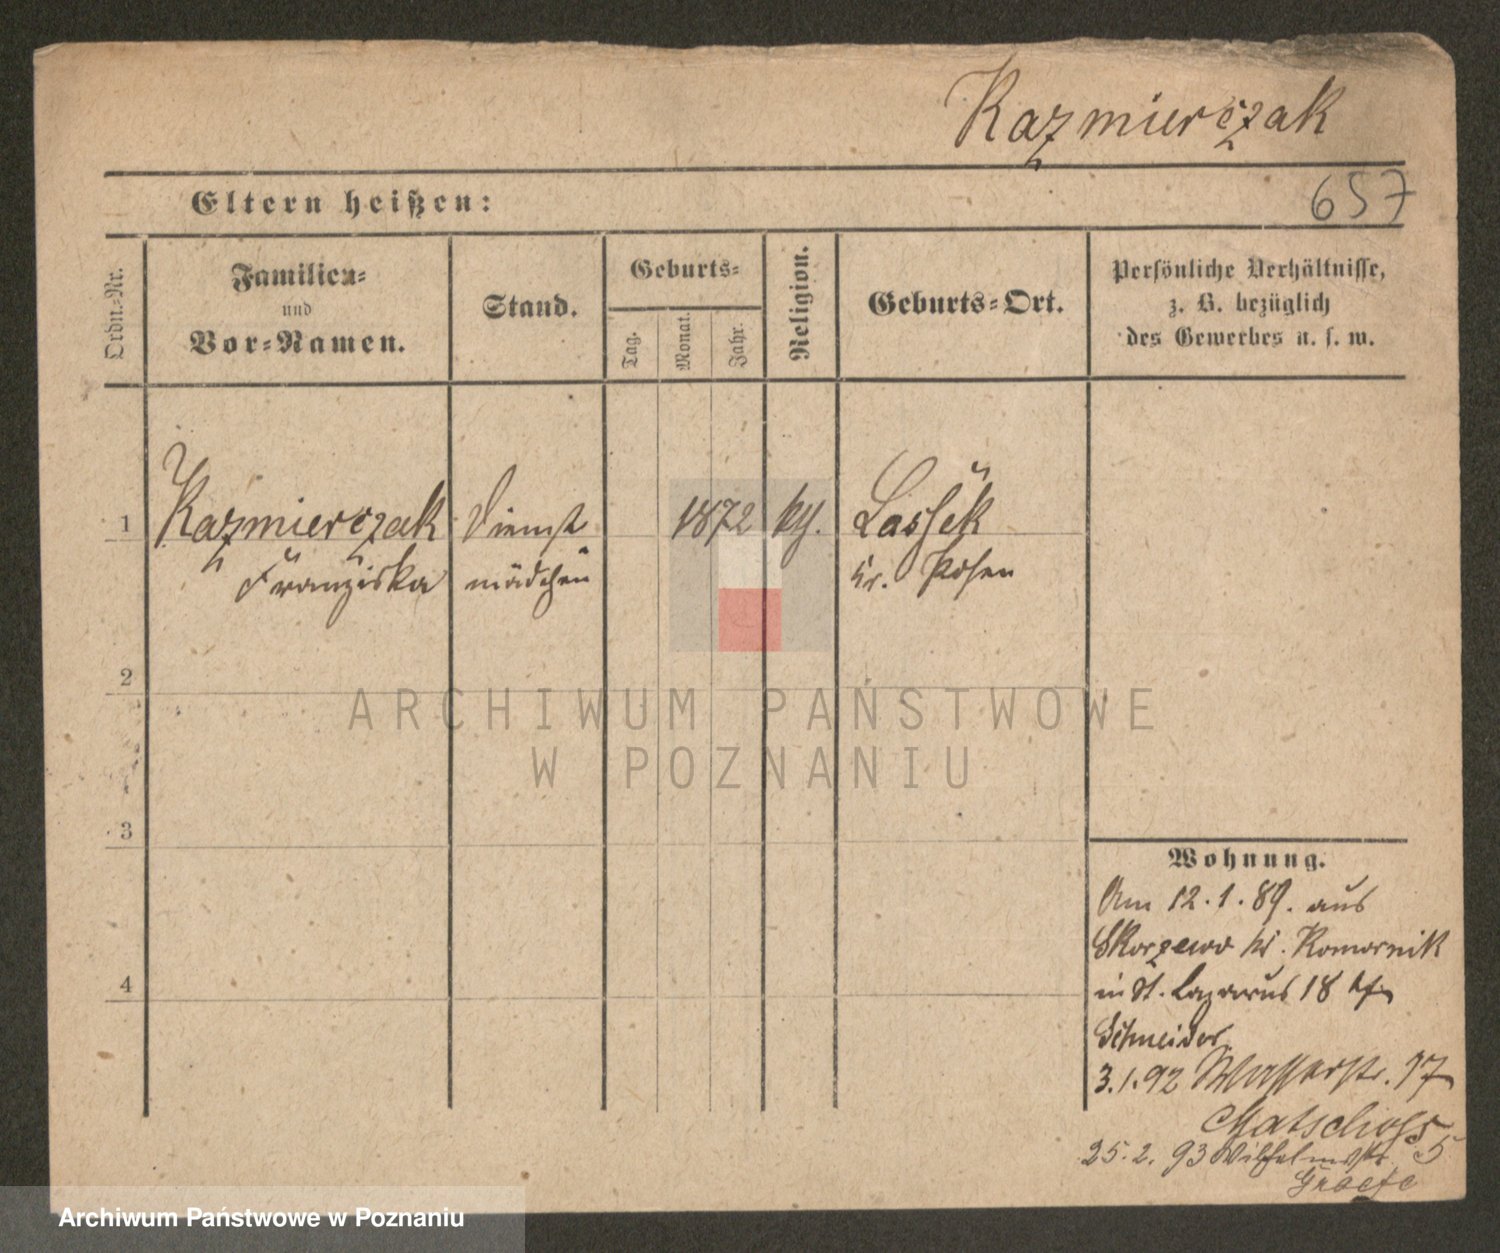 Kazmierczak
657
Eltern heißen:
Ordn.-Nr.
Familien-
und
Vor-Namen.
Stand.
Geburts-
Tag.
Monat.
Jahr.
Religion.
Geburts-Ort.
Persönliche Verhältnisse,
z. B. bezüglich
des Gewerbes u. s. w.
1
Kazmierczak
Franziska
Dienst
mädchen
1872
kth.
Lassek
Kr. Posen
2
3
4
Wohnung.
Am 12.1.89. aus
Skorzewo Kr. Komornik
in St. Lazarus 18
Schneider
3.1.92 Wasserstr. 17
Matschoss
25.2.93 Wilhelmstr. 5
Graefe
ARCHIWUM PAŃSTWOWE
W POZNANIU
Archiwum Państwowe w Poznaniu